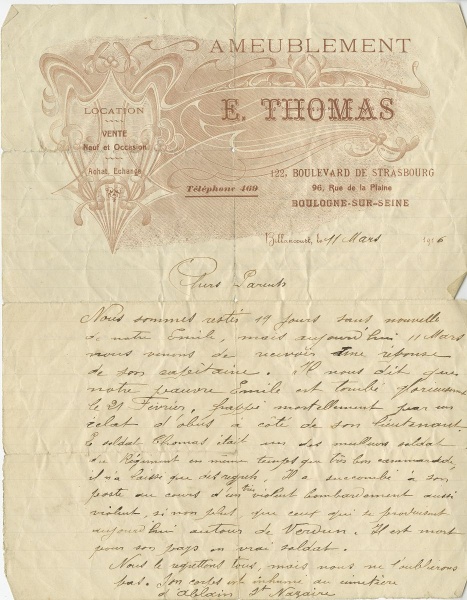 AMEUBLEMENT
E. THOMAS
LOCATION
VENTE
Neuf et Occasion
Achat, Echange
Téléphone 469
122, BOULEVARD DE STRASBOURG
96, Rue de la Plaine
BOULOGNE-SUR-SEINE
Billancourt, le 11 Mars 1916
Chers Parents
Nous sommes restés 19 jours sans nouvelle
de notre Emile, mais aujourd'hui 11 Mars
nous venons de recevoir une réponse
de son capitaine. Il nous dit que
notre pauvre Emile est tombé glorieusement
le 21 Fevrier, frappé mortellement par un
eclat d'obus à côté de son lieutenant
E soldat Thomas était un des meilleurs soldat
du Régiment en même temps que très bon camarade,
il n'a laissé que des regrets, Il a succombé à son
poste au cours d'un très violent bombardement aussi
violent, si non plus, que ceux qui se produisent
aujourd'hui autour de Verdun. Il est mort
pour son pays en vrai soldat.
Nous le regrettons tous, mais nous ne l'oublierons
pas. Son corps est inhumé au cimetière
d'Ablain St Nazaire